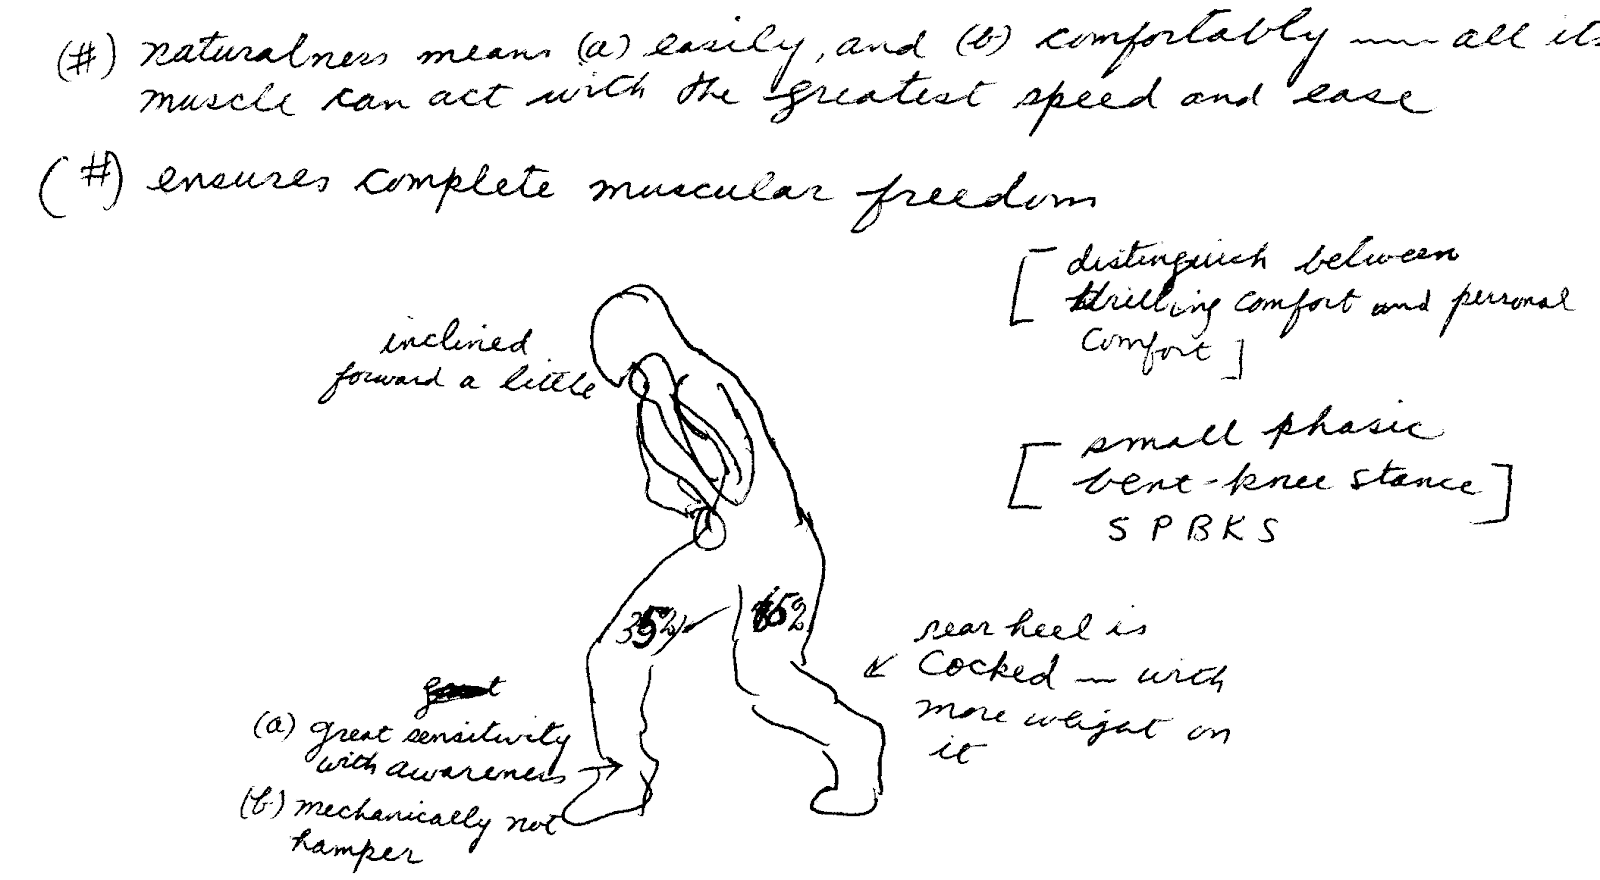 (#) naturalness means (a) easily, and (b) comfortably — all its
muscle can act with the greatest speed and ease
(#) ensures complete muscular freedom
[distinguish between
thrilling comfort and personal
comfort]
inclined
forward a little
[small phasic
bent-knee stance]
S P B K S
35%
rear heel is
cocked — with
more weight on
it
(a) great sensitivity
with awareness
(b) mechanically not
hamper